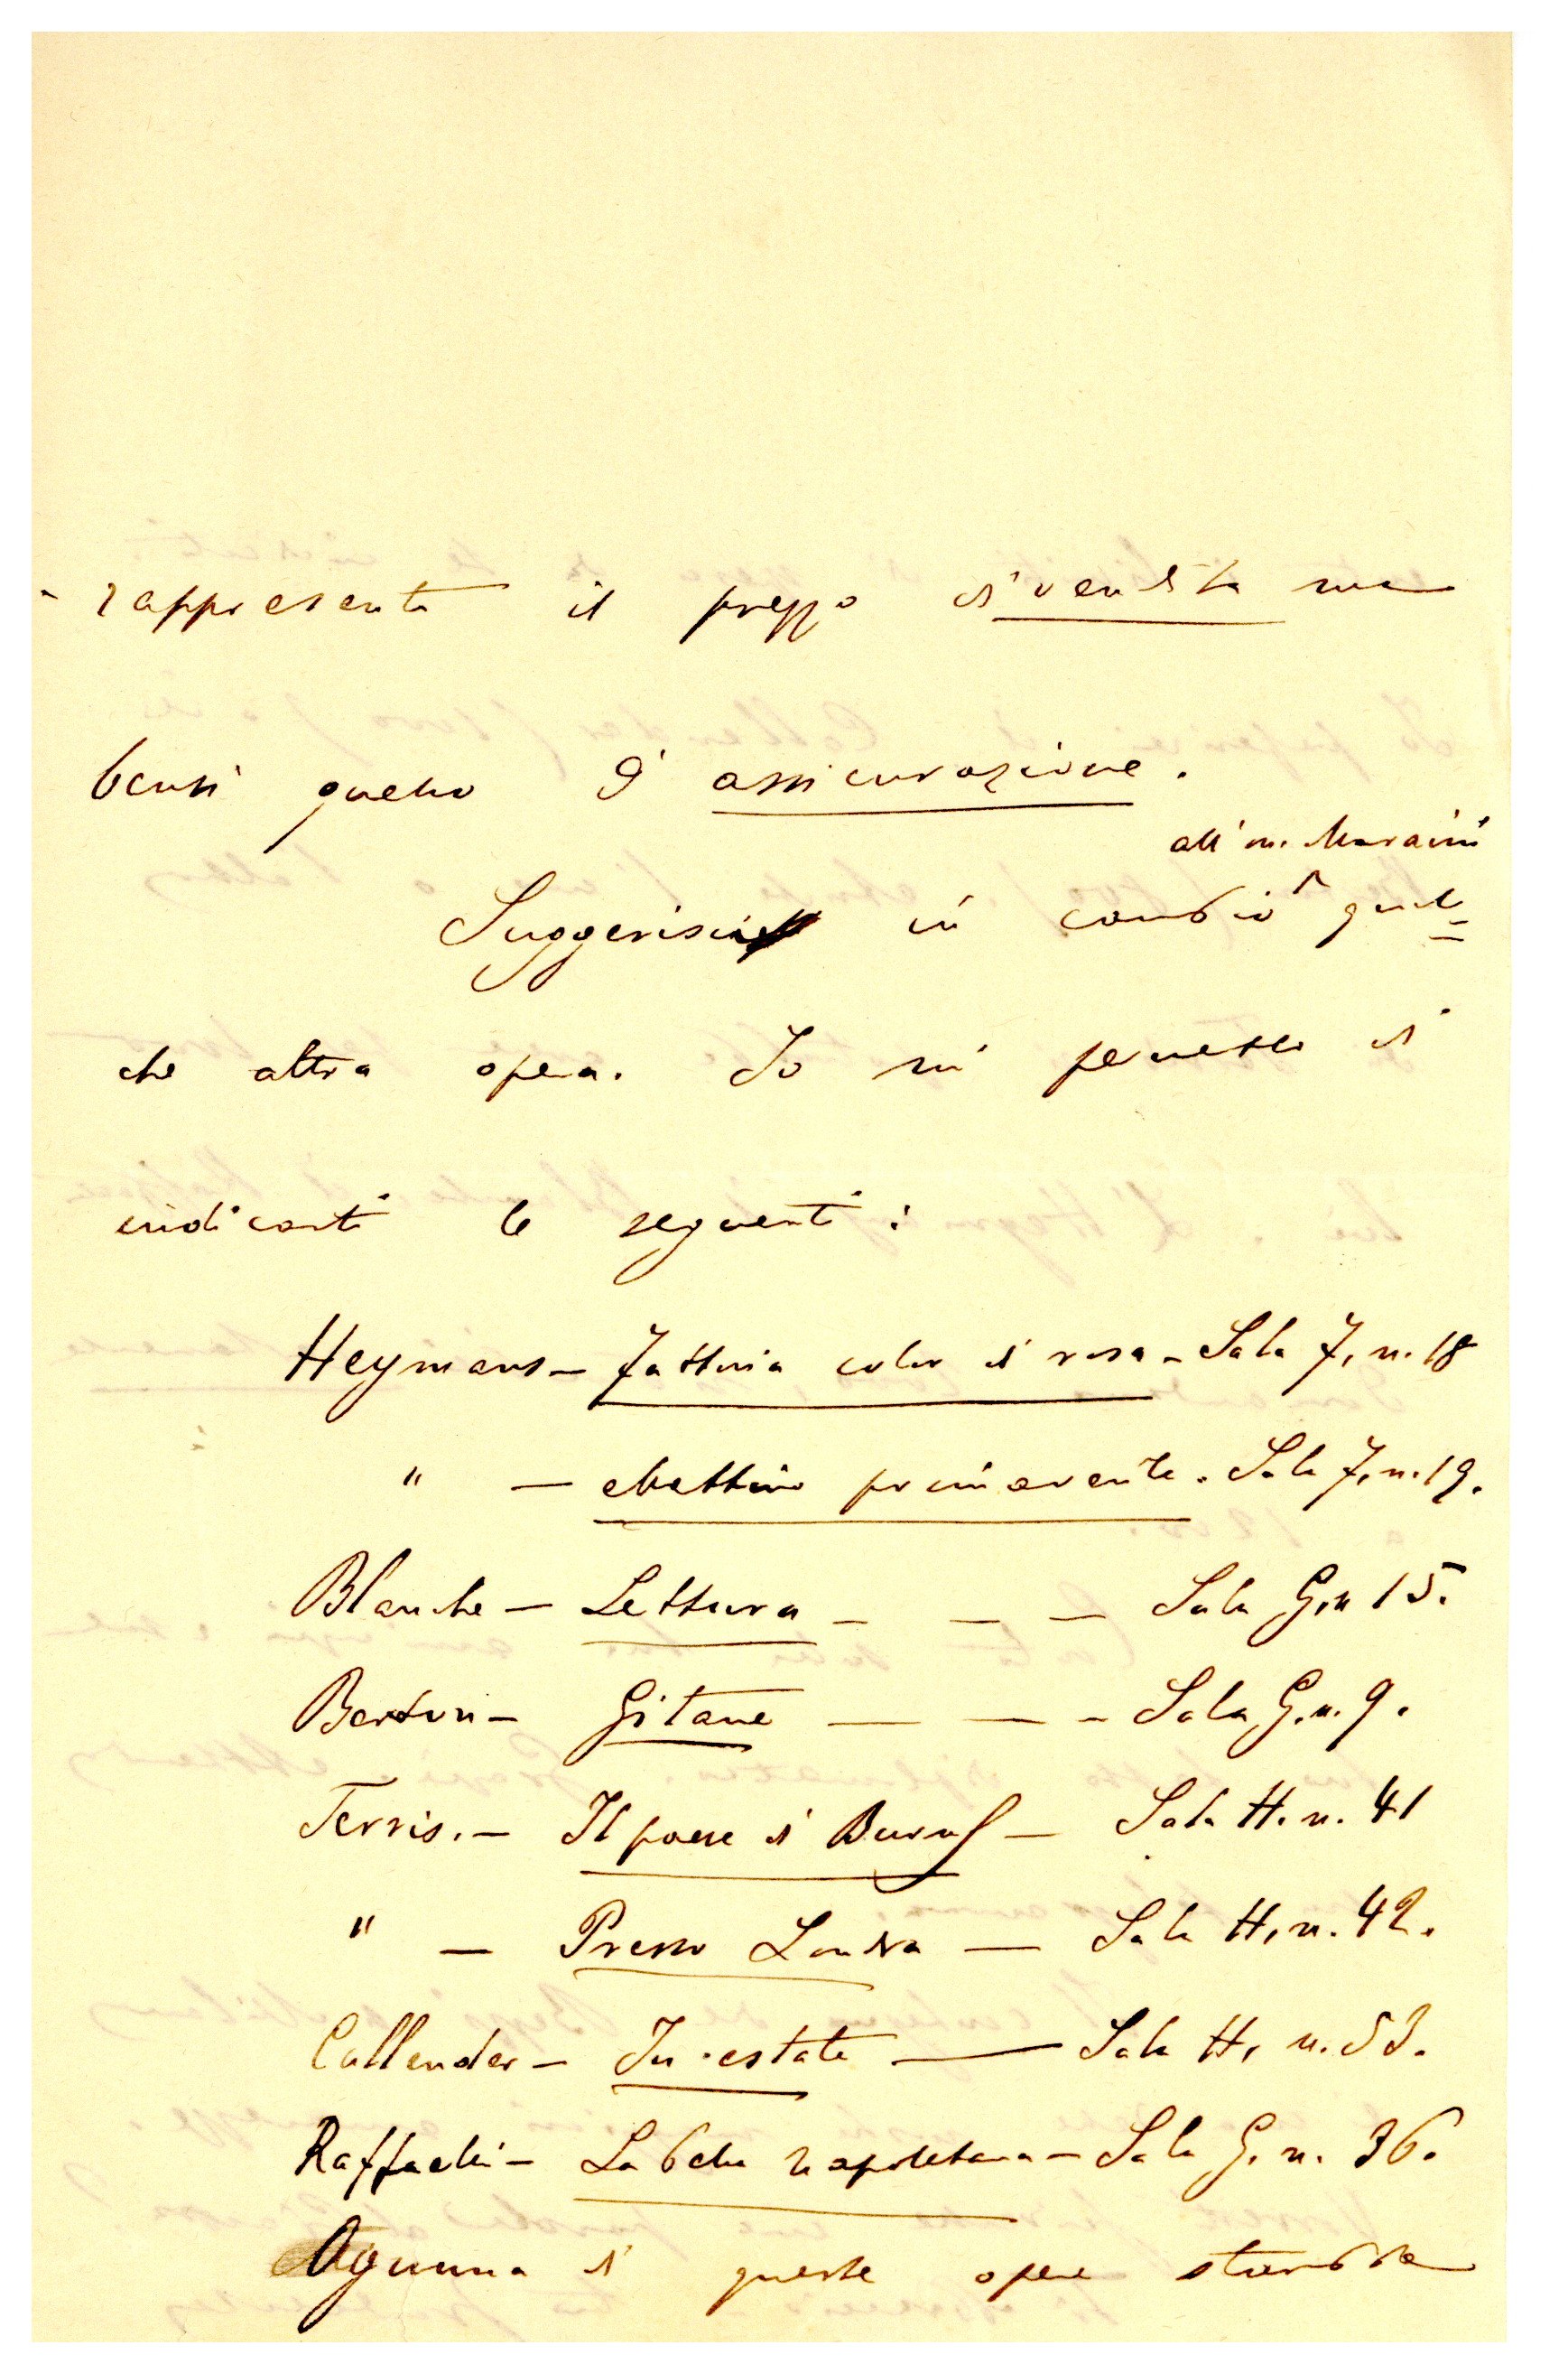 rappresenta il prezzo di vendita ma
bensì quello d'assicurazione.
all'on. Maraini
Suggerisci in cambio qual=
che altra opera. Io mi permetto di
indicarti le seguenti:
Heymans – Fattoria color di rosa – Sala 7, n. 18
" – Mattino primaverile. Sala 7, n. 19.
Blanche – Lettura – – – Sala G, n 15.
Berton – Gitane – – – Sala G. n. 9.
Terris. – Il paese di Burns – Sala H. n. 41
" – Presso Londra – Sala H, n. 42.
Callender – In estate – Sala H, n. 53.
Raffaelli – La bella napoletana – Sala G. n. 36.
Ognuna di queste opere starebbe